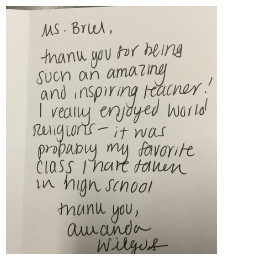 Ms. Briel,
thank you for being
such an amazing
and inspiring teacher!
I really enjoyed World
Religions – it was
probably my favorite
class I have taken
in high school
thank you,
amanda
Wilgus